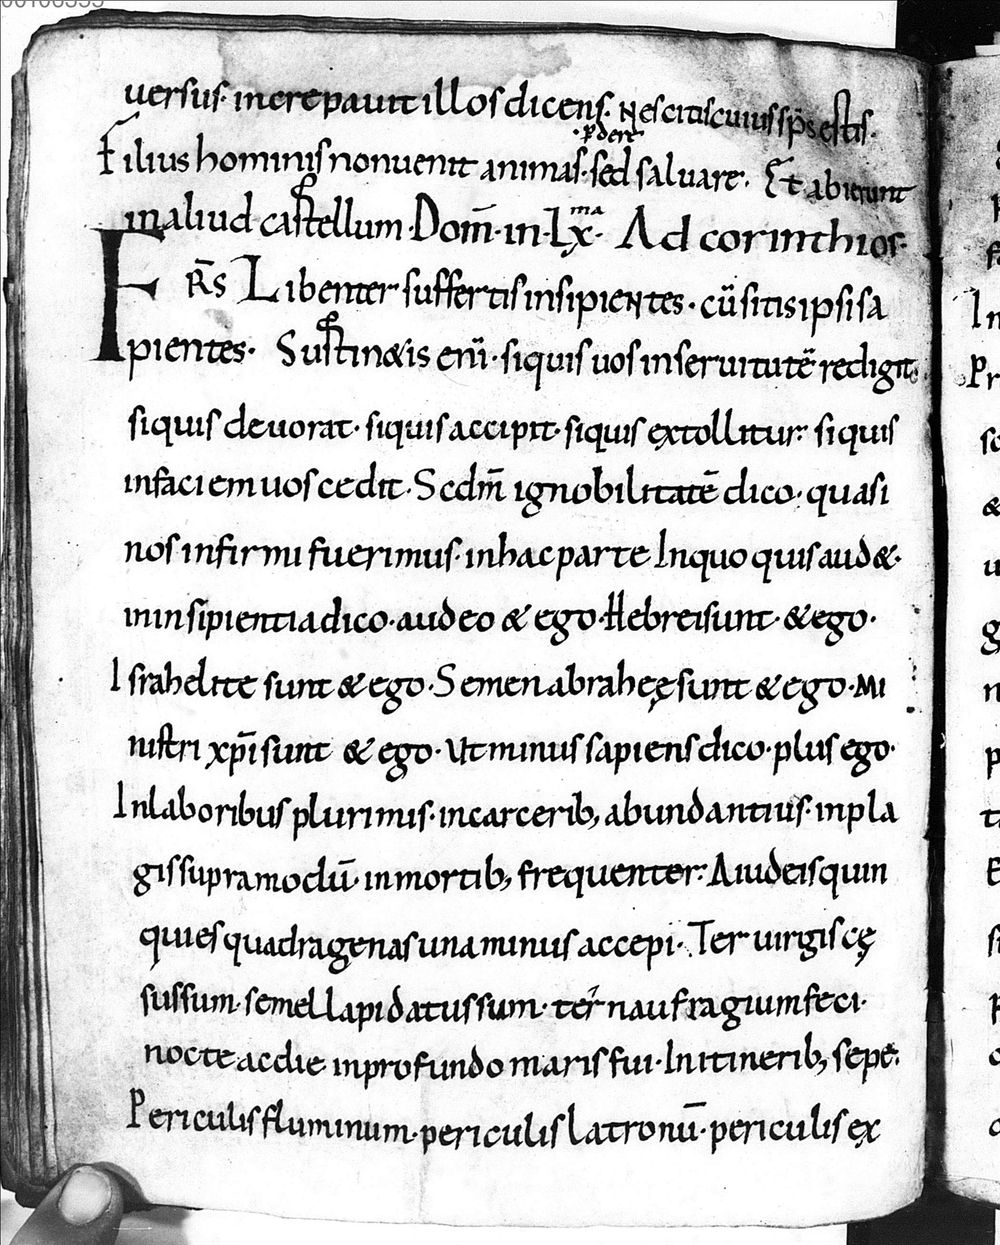 uersus. increpauit illos dicens. Nescitis cuius sp̄s estis.
·p̲dere
Filius hominis non uenit animas. sed saluare. Et abierunt
in aliud castellum. Dom̄. in. Lx.ma Ad corinthios.
FR̄S Libenter suffertis insipientes. cū sitis ipsi sa
pientes. Sustin&is enī. siquis uos in seruitutē redigit.
siquis deuorat. siquis accipit. siquis extollitur. siquis
in faciem uos cedit. Scdm̄ ignobilitatē dico. quasi
nos infirmi fuerimus. in hac parte In quo quis aud&.
in insipientia dico. audeo & ego. Hebrei sunt. & ego.
Israhelite sunt & ego. Semen abrahę sunt & ego. Mi
nistri xp̄i sunt & ego. Ut minus sapiens dico. plus ego.
In laboribus plurimis. in carcerib; abundantius. in pla
gis supra modū. in mortib; frequenter. A iudeis quin
quies quadragenas una minus accepi. Ter uirgis cę
sus sum. semel lapidatus sum. ter naufragium feci.
nocte ac die in profundo maris fui. In itinerib; sepe.
Periculis fluminum. periculis latronū. periculis ex